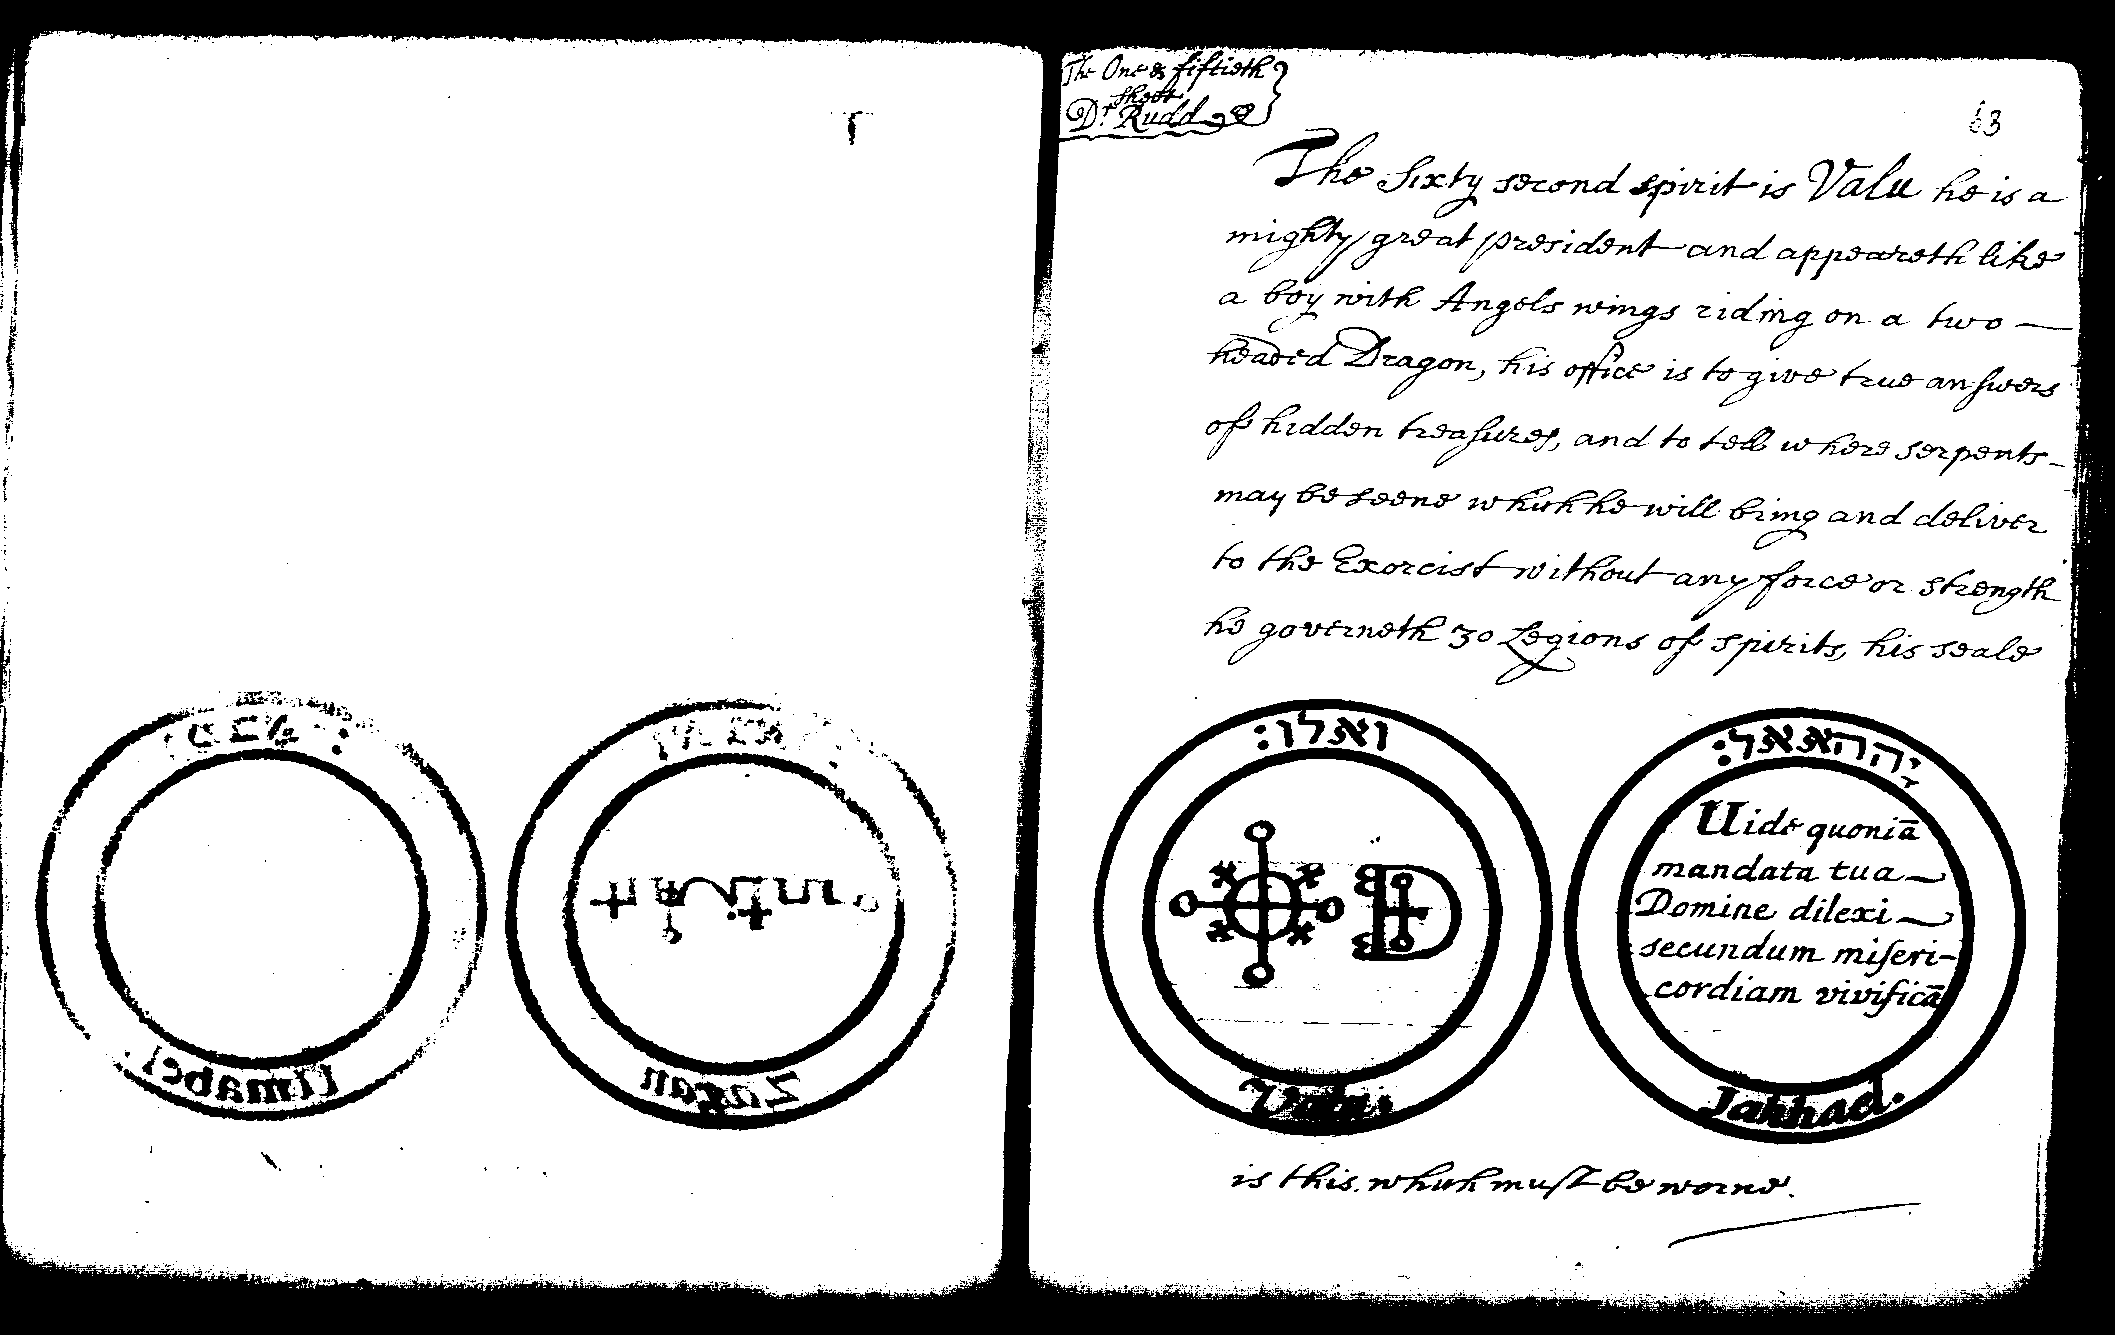 The One & fiftieth
sheet
Dr Rudd
63
The Sixty second spirit is Valu he is a
mighty great president and appeareth like
a boy with Angels wings riding on a two
headed Dragon, his office is to give true answers
of hidden treasures, and to tell where serpents
may be seene which he will bring and deliver
to the Exorcist without any force or strength
he governeth 30 Legions of spirits, his seale
ואלו:
יההאאל:
Uide quoniā
mandata tua
Domine dilexi
secundum miseri-
cordiam vivificā
Valu.
Jahhael.
is this. which must be worne.
Umabel.
Zagan